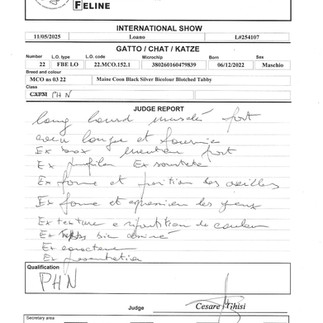 FELINE
INTERNATIONAL SHOW
11/05/2025 Loano L#254107
GATTO / CHAT / KATZE
Number L.O. type L.O. code Microchip Born Sex
22 FBE LO 22.MCO.152.1 380260160479839 06/12/2022 Maschio
Breed and colour
MCO ns 03 22 Maine Coon Black Silver Bicolour Blotched Tabby
Class
PHN
JUDGE REPORT
long lourd musclé fort
longue et fournie
Ex box menton fort
Ex profilon Ex
Ex forme et position des oreilles
Ex forme et expression des yeux
Ex texture e répartition de couleur
Ex bien
Ex caractere
Ex presentation
Qualification
PHN
Judge Cesare Ghisi
Secretary area